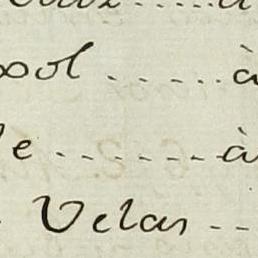 ool ...... à
e ....... à
Velas --